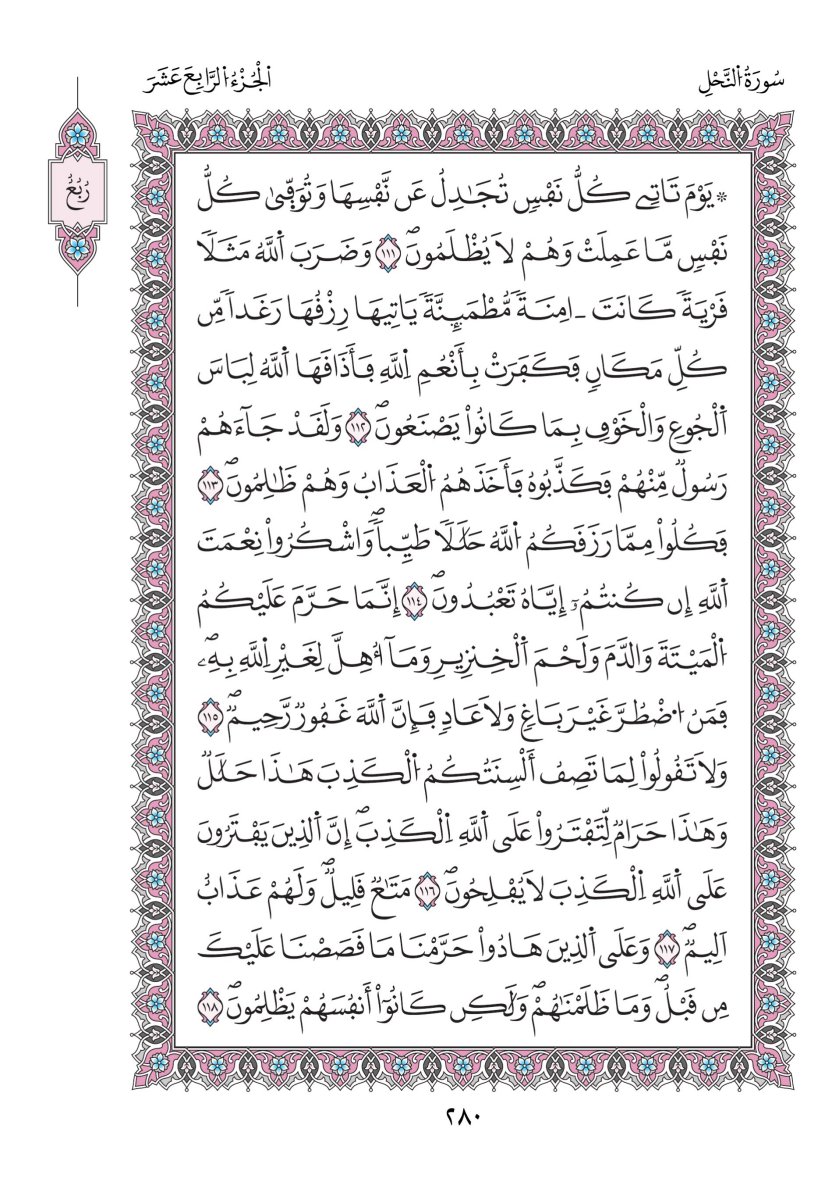 سُورَةُ النَّحْلِ
الْجُزْءُ الرَّابِعَ عَشَرَ
رُبُعُ
* يَوْمَ تَاتِے كُلُّ نَفْسٖ تُجَٰدِلُ عَن نَّفْسِهَا وَتُوَفّ۪يٰ كُلُّ
نَفْسٖ مَّا عَمِلَتْ وَهُمْ لَا يُظْلَمُونَۖ ١١١ وَضَرَبَ اَ۬للَّهُ مَثَلاٗ
قَرْيَةٗ كَانَتَ ـ امِنَةٗ مُّطْمَئِنَّةٗ يَاتِيهَا رِزْقُهَا رَغَداٗ مِّن
كُلِّ مَكَانٖ فَكَفَرَتْ بِأَنْعُمِ اِ۬للَّهِ فَأَذَٰقَهَا اَ۬للَّهُ لِبَاسَ
اَ۬لْجُوعِ وَالْخَوْفِ بِمَا كَانُواْ يَصْنَعُونَۖ ١١٢ وَلَقَدْ جَآءَهُمْ
رَسُولٞ مِّنْهُمْ فَكَذَّبُوهُ فَأَخَذَهُمُ اُ۬لْعَذَابُ وَهُمْ ظَٰلِمُونَۖ ١١٣
فَكُلُواْ مِمَّا رَزَقَكُمُ اُ۬للَّهُ حَلَٰلاٗ طَيِّباٗۖ وَاشْكُرُواْ نِعْمَتَ
اَ۬للَّهِ إِن كُنتُمُۥٓ إِيَّاهُ تَعْبُدُونَۖ ١١٤ إِنَّمَا حَرَّمَ عَلَيْكُمُ
اُ۬لْمَيْتَةَ وَالدَّمَ وَلَحْمَ اَ۬لْخِنزِيرِ وَمَآ أُهِلَّ لِغَيْرِ اِ۬للَّهِ بِهِۦۖ
فَمَنُ اُ۟ضْطُرَّ غَيْرَ بَاغٖ وَلَا عَادٖ فَإِنَّ اَ۬للَّهَ غَفُورٞ رَّحِيمٞۖ ١١٥
وَلَا تَقُولُواْ لِمَا تَصِفُ أَلْسِنَتُكُمُ اُ۬لْكَذِبَ هَٰذَا حَلَٰلٞ
وَهَٰذَا حَرَامٞ لِّتَفْتَرُواْ عَلَى اَ۬للَّهِ اِ۬لْكَذِبَۖ إِنَّ اَ۬لذِينَ يَفْتَرُونَ
عَلَى اَ۬للَّهِ اِ۬لْكَذِبَ لَا يُفْلِحُونَۖ ١١٦ مَتَٰعٞ قَلِيلٞۖ وَلَهُمْ عَذَابٌ
اَلِيمٞۖ ١١٧ وَعَلَى اَ۬لذِينَ هَادُواْ حَرَّمْنَا مَا قَصَصْنَا عَلَيْكَ
مِن قَبْلُۖ وَمَا ظَلَمْنَٰهُمْۖ وَلَٰكِن كَانُوٓاْ أَنفُسَهُمْ يَظْلِمُونَۖ ١١٨
٢٨٠